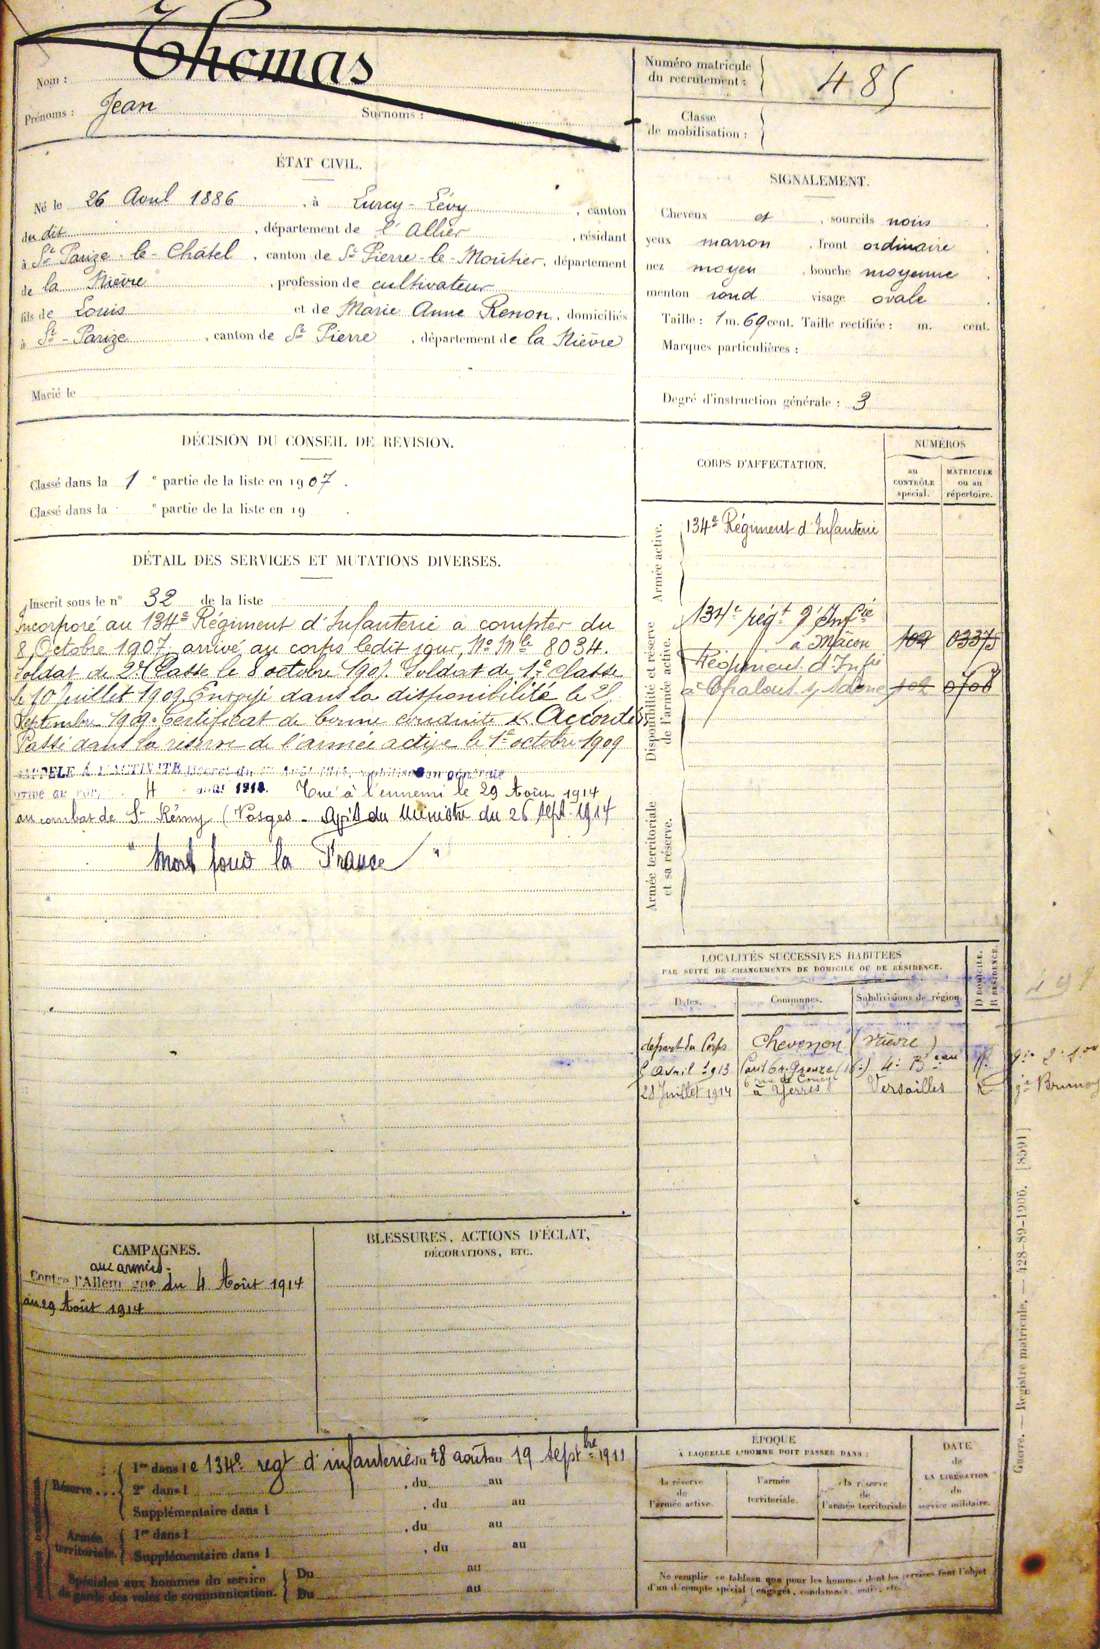 Nom : Thomas
Prénoms : Jean Surnoms :
Numéro matricule
du recrutement : 485
Classe
de mobilisation :
ÉTAT CIVIL.
Né le 26 Avril 1886, à Lurcy-Lévy, canton
du dit, département de l'Allier, résidant
à St Parize-le-Châtel, canton de St Pierre-le-Moutier, département
de la Nièvre, profession de cultivateur
fils de Louis et de Marie Anne Renon, domiciliés
à St-Parize, canton de St Pierre, département de la Nièvre
Marié le
SIGNALEMENT.
Cheveux et sourcils noirs
yeux marron, front ordinaire
nez moyen, bouche moyenne
menton rond visage ovale
Taille : 1 m. 69 cent. Taille rectifiée : m. cent.
Marques particulières :
Degré d'instruction générale : 3
DÉCISION DU CONSEIL DE REVISION.
Classé dans la 1 e partie de la liste en 1907.
Classé dans la e partie de la liste en 19 .
CORPS D'AFFECTATION.
NUMÉROS
au
CONTRÔLE
spécial.
MATRICULE
ou au
répertoire.
Armée active.
134e Régiment d'Infanterie
Disponibilité et réserve
de l'armée active.
134e régt d'Infie
à Mâcon 102 03375
Régiment d'Infie
à Chalons s/ Saône 102 0708
Armée territoriale
et sa réserve.
DÉTAIL DES SERVICES ET MUTATIONS DIVERSES.
Inscrit sous le n° 32 de la liste
Incorporé au 134e Régiment d'Infanterie à compter du
8 Octobre 1907, arrivé au corps ledit jour, No Mle 8034.
Soldat de 2e Classe le 8 octobre 1907. Soldat de 1e classe
le 10 Juillet 1909. Envoyé dans la disponibilité le 25
Septembre 1909. Certificat de bonne conduite Accordé
Passé dans la réserve de l'armée active le 1e octobre 1909
RAPPELÉ À L'ACTIVITÉ mobilisation générale
4 août 1914. Tué à l'ennemi le 29 Août 1914
au combat de St Rémy (Vosges - Avis du Ministre du 26 sept. 1914
" Mort pour la France "
LOCALITÉS SUCCESSIVES HABITÉES
PAR SUITE DE CHANGEMENTS DE DOMICILE OU DE RÉSIDENCE.
Dates. Communes. Subdivisions de région.
D DOMICILE.
R RÉSIDENCE.
départ du Corps Chevenon (Nièvre)
5 avril 1913 4e Beau R.
28 Juillet 1914 à Yerres Versailles R
CAMPAGNES.
aux armées
Contre l'Allemagne du 4 Août 1914
au 29 Août 1914
BLESSURES, ACTIONS D'ÉCLAT,
DÉCORATIONS, ETC.
Réserve...
1re dans le 134e regt d'infanterie du 28 août au 19 septbre 1911
2e dans l , du au
Supplémentaire dans l , du au
Armée
territoriale.
1re dans l , du au
Supplémentaire dans l , du au
Spéciales aux hommes du service
de garde des voies de communication.
Du au
Du au
ÉPOQUE
À LAQUELLE L'HOMME DOIT PASSER DANS :
la réserve
de
l'armée active.
l'armée
territoriale.
la réserve
de
l'armée territoriale
DATE
de
LA LIBÉRATION
du
service militaire.
Ne remplir ce tableau que pour les hommes dont les services font l'objet
d'un décompte spécial (engagés, condamnés, omis, etc.
Guerre. — Registre matricule. — 428-89-1906. [8591]